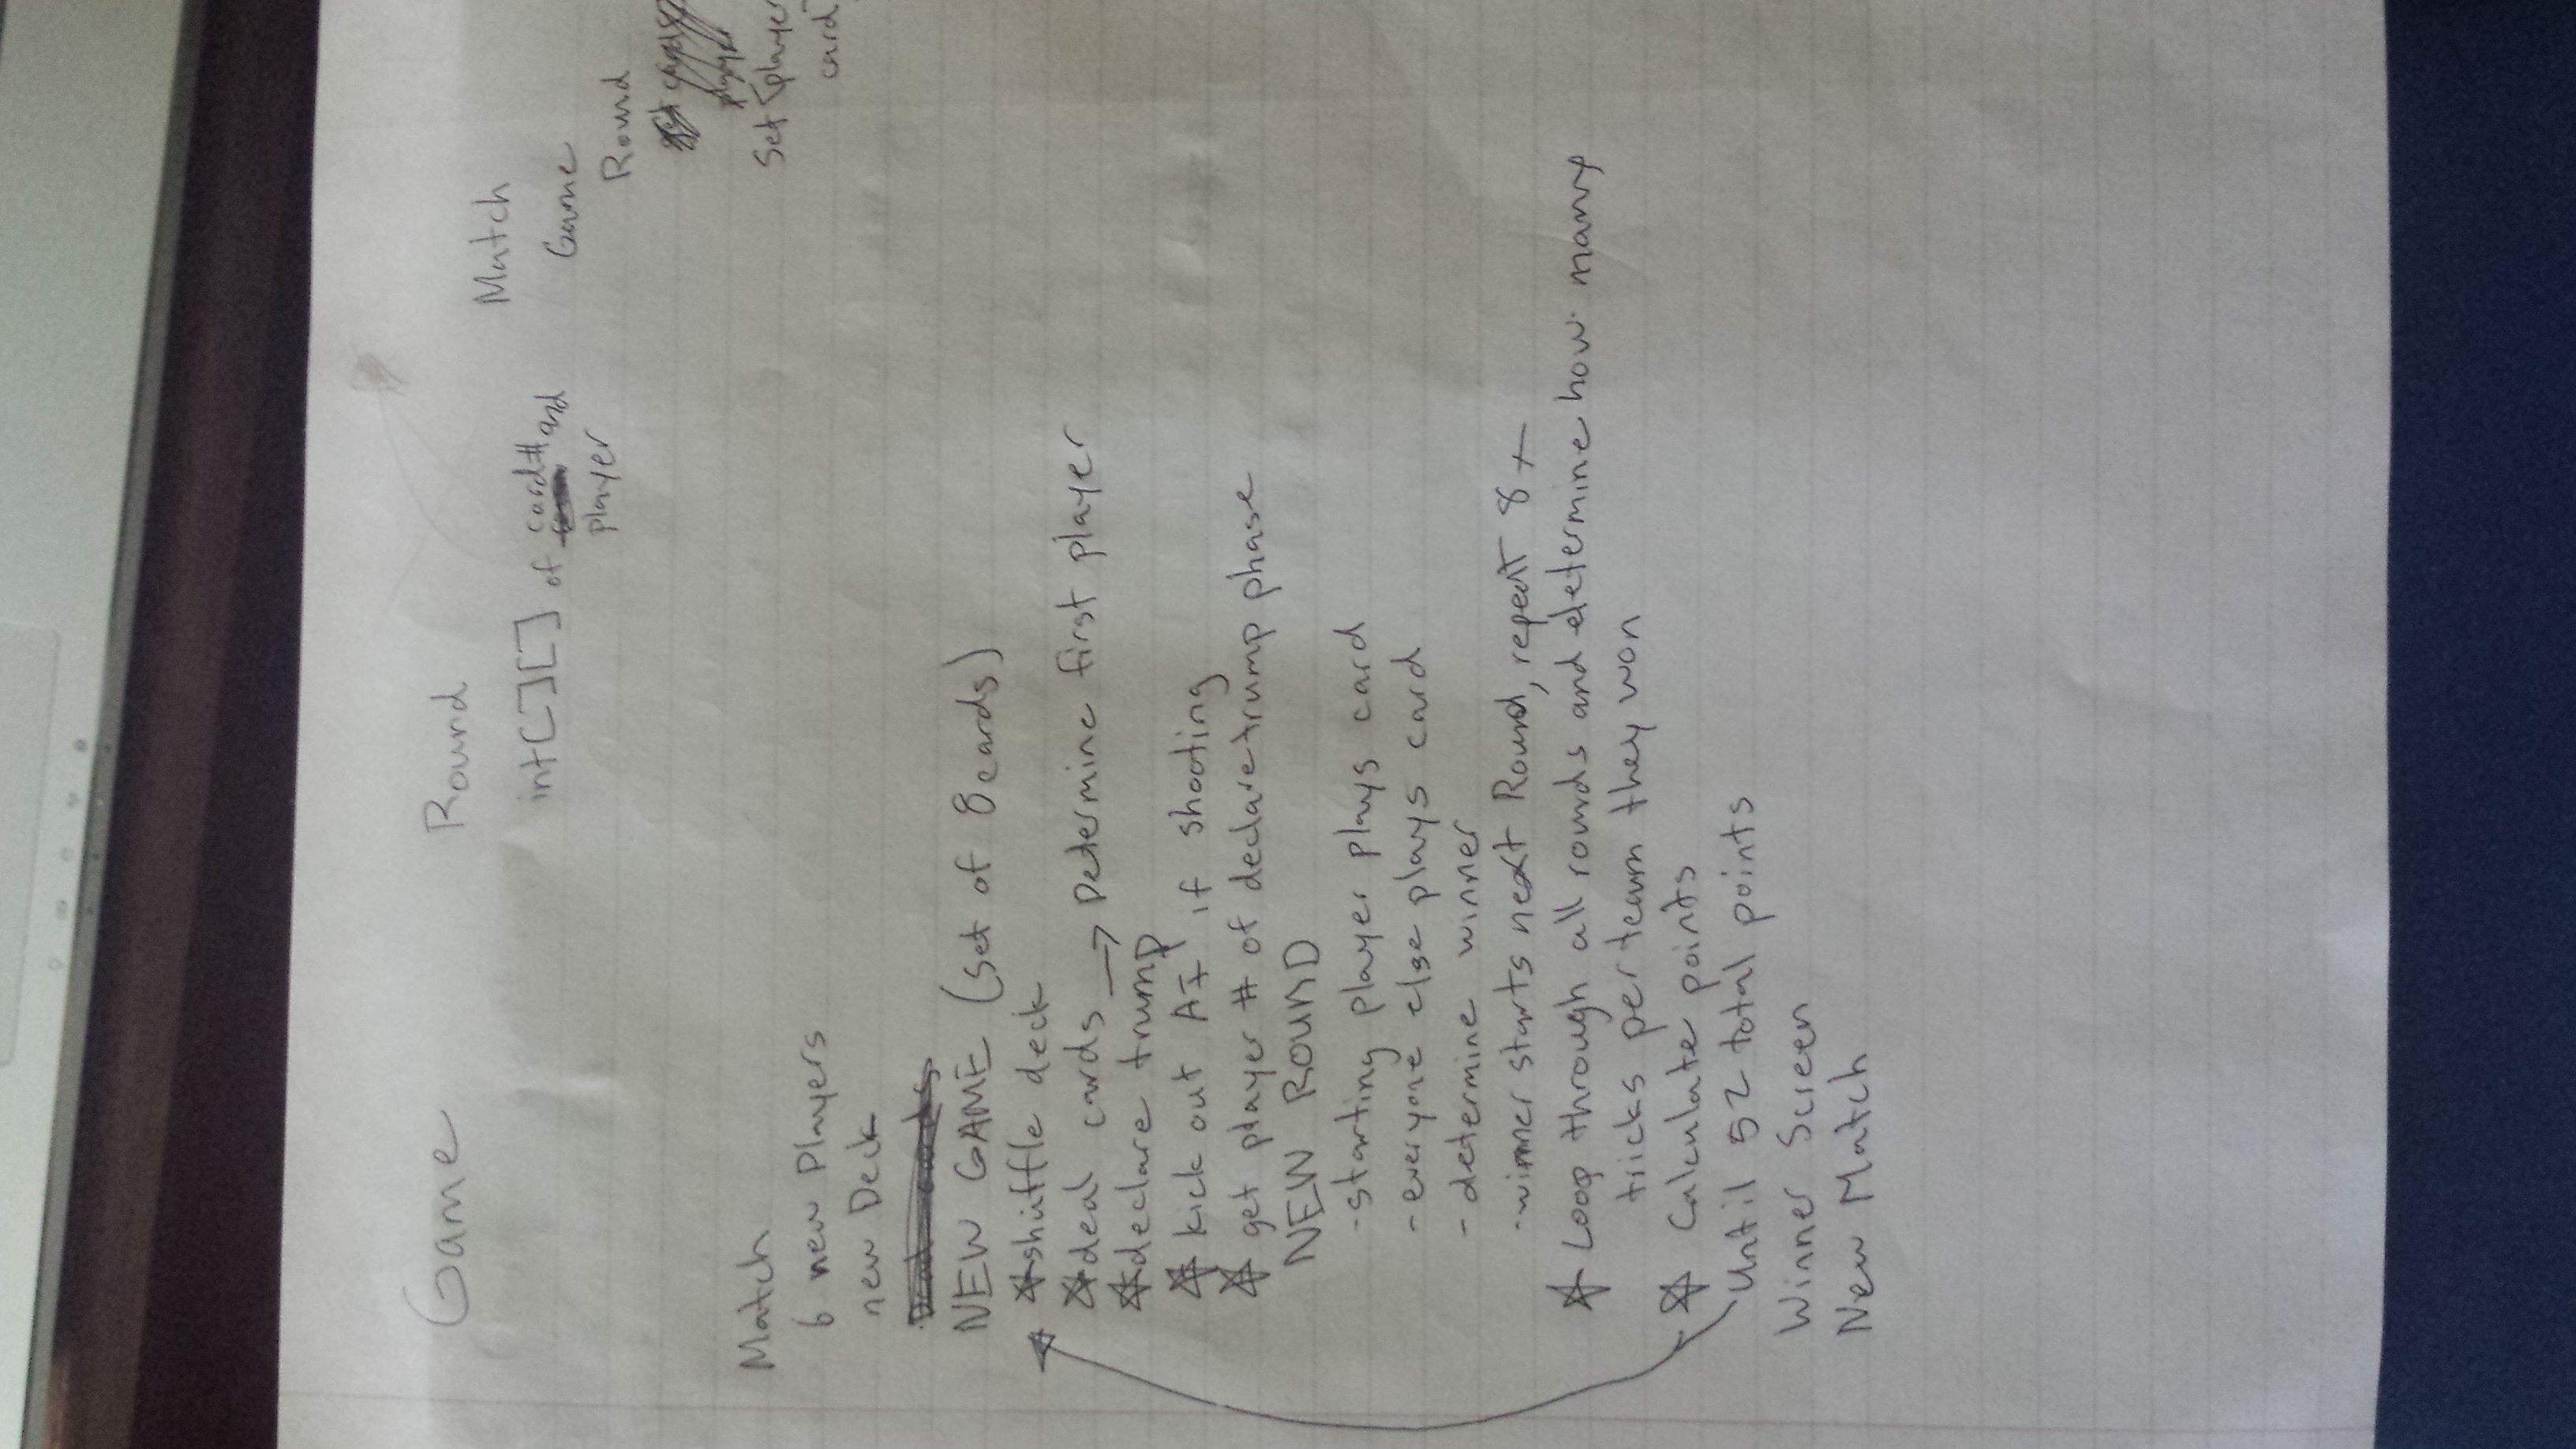 Game
Round
int[][] of card# and
player
Match
Game
Round
player
Set <player
card
Match
6 new Players
new Deck
Dead cards
NEW GAME (set of 8 cards)
☆shuffle deck
☆deal cards → Determine first player
☆declare trump
☆ kick out AI if shooting
☆ get player # of declare trump phase
NEW ROUND
-starting player plays card
-everyone else plays card
- determine winner
-winner starts next Round, repeat 8x
☆ Loop through all rounds and determine how many
tricks per team they won
☆ Calculate points
Until 52 total points
Winner Screen
New Match